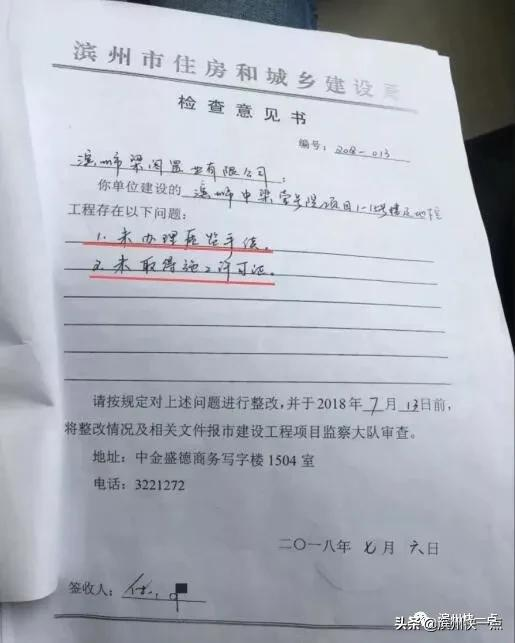 滨州市住房和城乡建设局
检查意见书
编号：208-013
滨州市梁阁置业有限公司：
你单位建设的 滨州市中梁学府院项目1-15#楼及地下室
工程存在以下问题：
1.未办理质监手续。
2.未取得施工许可证。
请按规定对上述问题进行整改，并于2018年7月13日前，
将整改情况及相关文件报市建设工程项目监察大队审查。
地址：中金盛德商务写字楼1504室
电话：3221272
二〇一八年七月六日
签收人：
滨州快一点
头条@滨州快一点